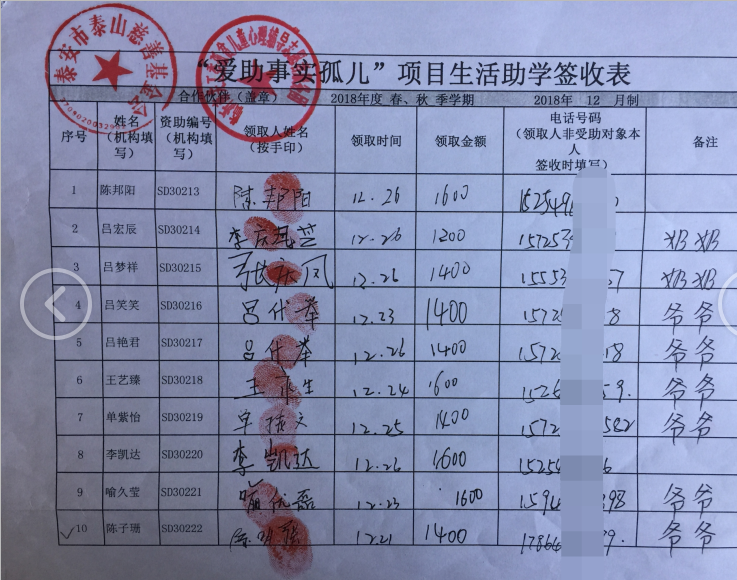 泰安市泰山慈善基金会
“爱助事实孤儿”项目生活助学签收表
合作伙伴（盖章） 2018年度 春、秋 季学期 2018年 12 月制
序号 姓名（机构填写） 资助编号（机构填写） 领取人姓名（按手印） 领取时间 领取金额 电话号码（领取人非受助对象本人签收时填写） 备注
1 陈邦阳 SD30213 陈邦阳 12.26 1600 152549
2 吕宏辰 SD30214 12.26 1200 157253 奶奶
3 吕梦祥 SD30215 12.26 1400 15553 7 奶奶
4 吕笑笑 SD30216 12.23 1400 1572 8 爷爷
5 吕艳君 SD30217 12.26 1400 1572 18 爷爷
6 王艺臻 SD30218 12.24 1600 1526 59. 爷爷
7 单紫怡 SD30219 12.25 1400 1572 582 爷爷
8 李凯达 SD30220 李凯达 12.26 1600 15254 6
9 喻久莹 SD30221 12.23 1600 1594 398 爷爷
10 陈子珊 SD30222 12.21 1400 17866 39. 爷爷